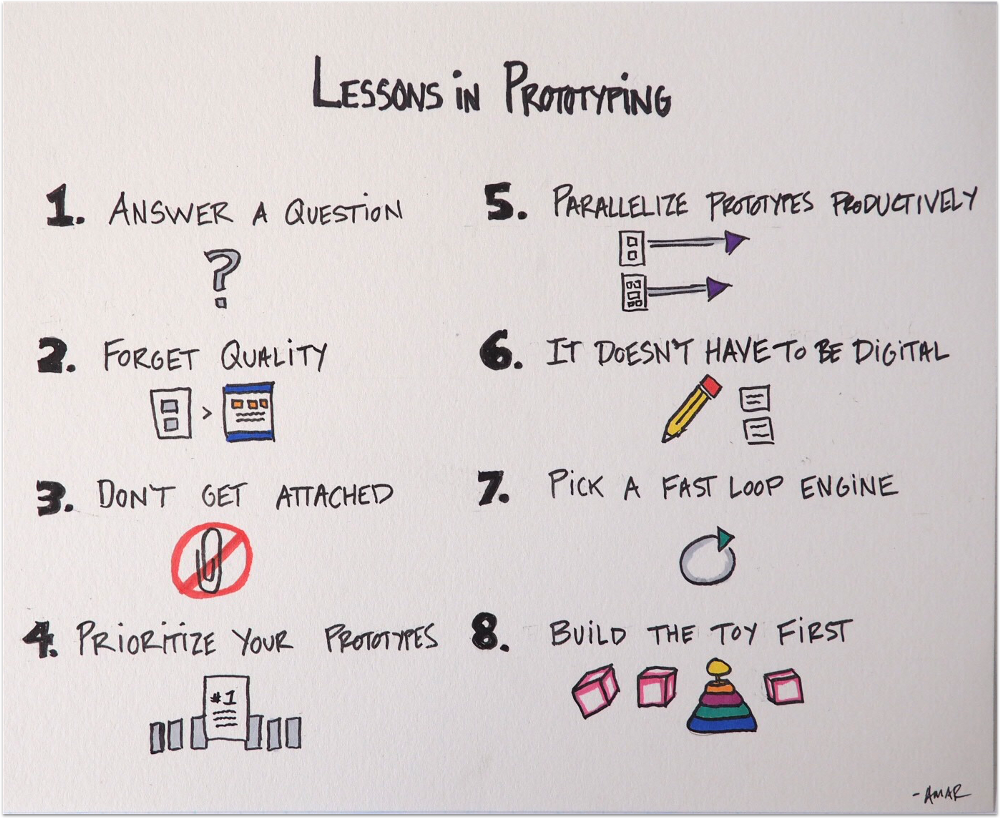 LESSONS IN PROTOTYPING
1. ANSWER A QUESTION
?
2. FORGET QUALITY
>
3. DON'T GET ATTACHED
4. PRIORITIZE YOUR PROTOTYPES
#1
5. PARALLELIZE PROTOTYPES PRODUCTIVELY
6. IT DOESN'T HAVE TO BE DIGITAL
7. PICK A FAST LOOP ENGINE
8. BUILD THE TOY FIRST
-AMAR